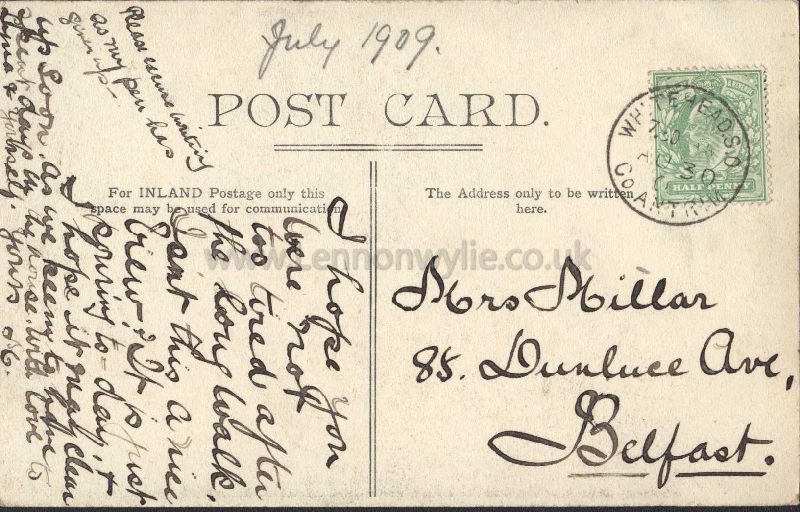 July 1909.
POST CARD.
For INLAND Postage only this
space may be used for communication.
The Address only to be written
here.
WHITEHEAD S.O
7 30
30
CO. ANTRIM
HALF PENNY
www.Lennonwylie.co.uk
Mrs Millar
85. Dunluce Ave,
Belfast.
I hope you
were not
too tired after
the long walk.
Isnt this a nice
view? It is just
pouring to-day, &
I hope it may clear
up soon, as we seem to have to
spend days in the house. With love to
& yourself. Yours
M.
Please excuse writing
as my pen has
given up-